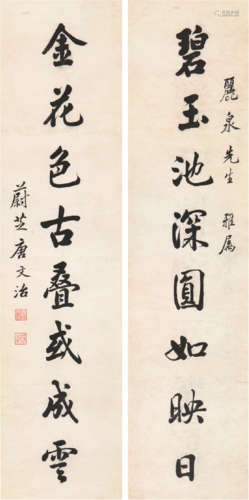 麗泉先生 雅屬
碧玉池深圓如映日
金花色古叠或成雲
蔚芝唐文治